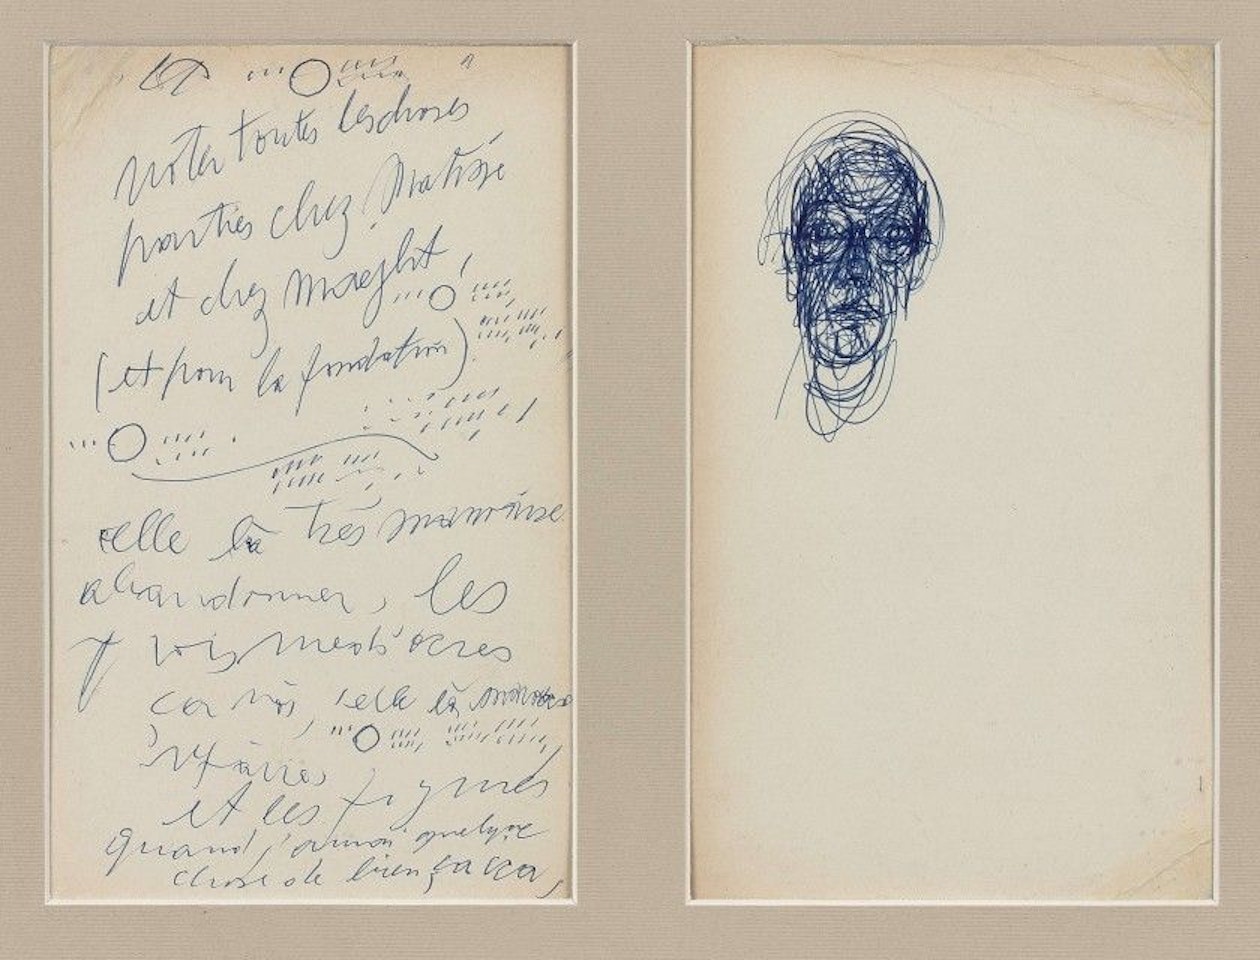 noter toutes les choses
parties chez Matisse
et chez Maeght,
(et pour la fondation)
celle là très mauvaise
abandonner, les
trois médiocres
celle là
refaires,
et les figures
quand j'aurai quelque
chose de bien, ça ira,